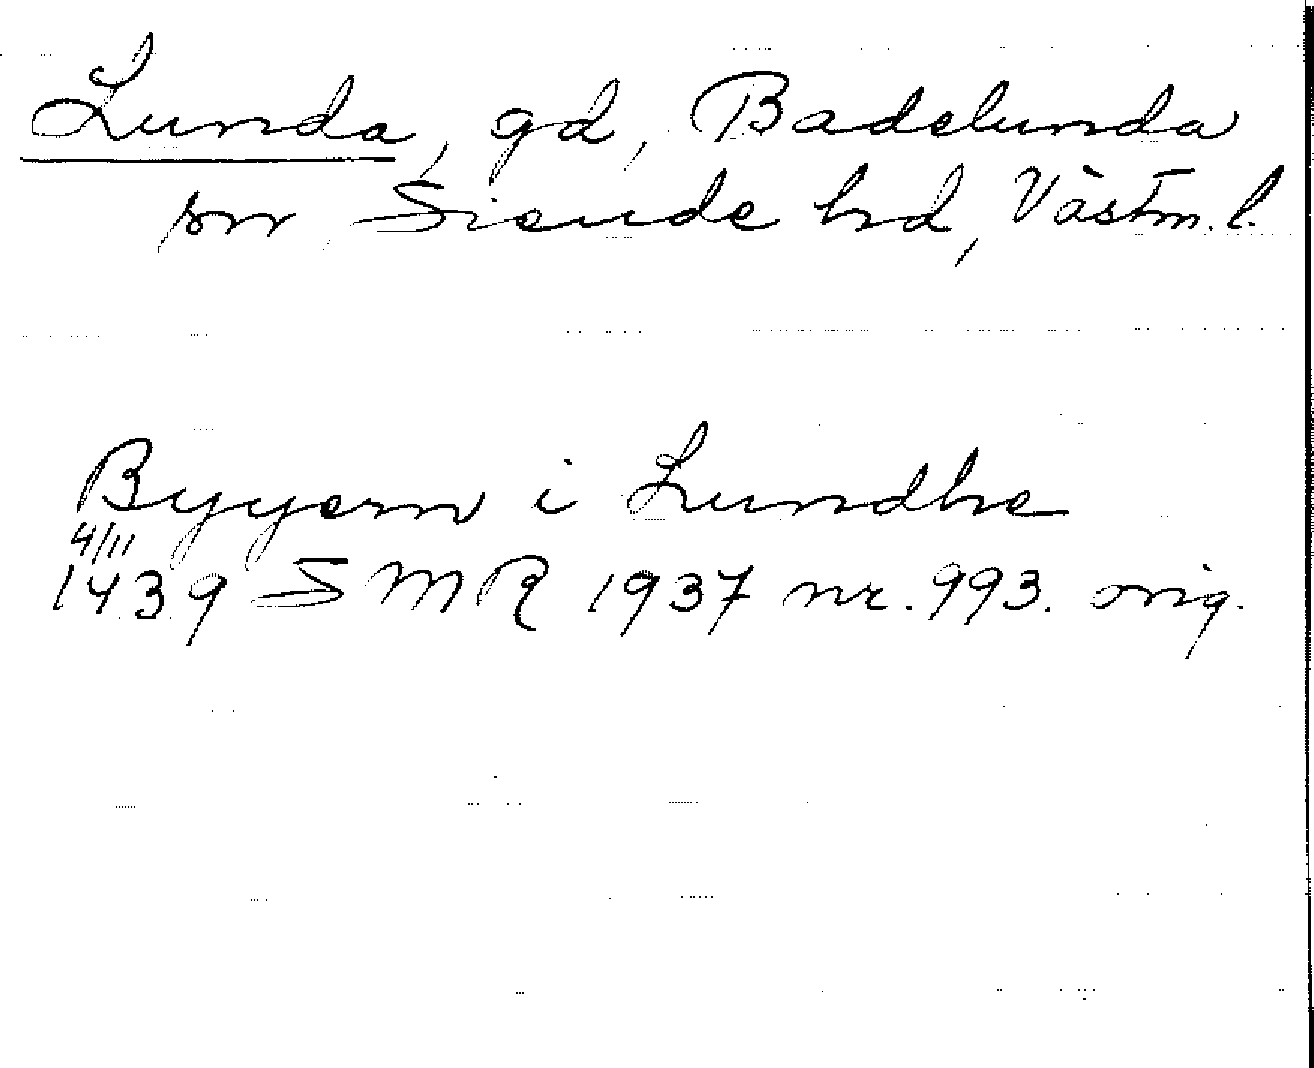 Lunda, gd, Badelunda
sn, Siende hd, Västm. l.
Byyern i Lundhe
4/11
1439 SMR 1937 nr. 993. orig.